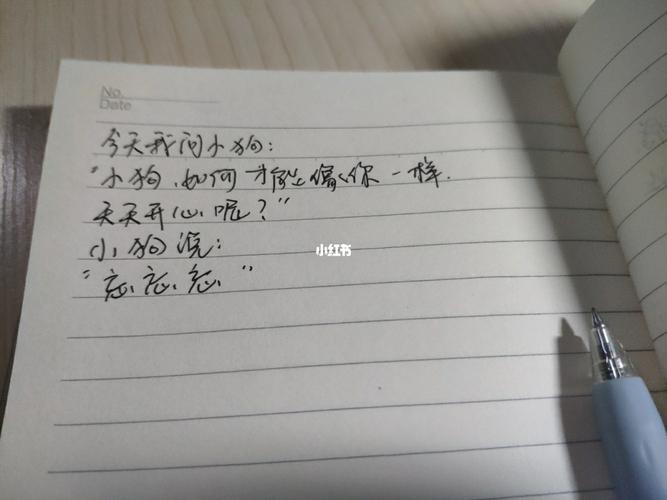 No.
Date
今天我问小狗:
"小狗,如何才能像你一样.
天天开心呢?"
小狗说:
"忘,忘,忘."
小红书